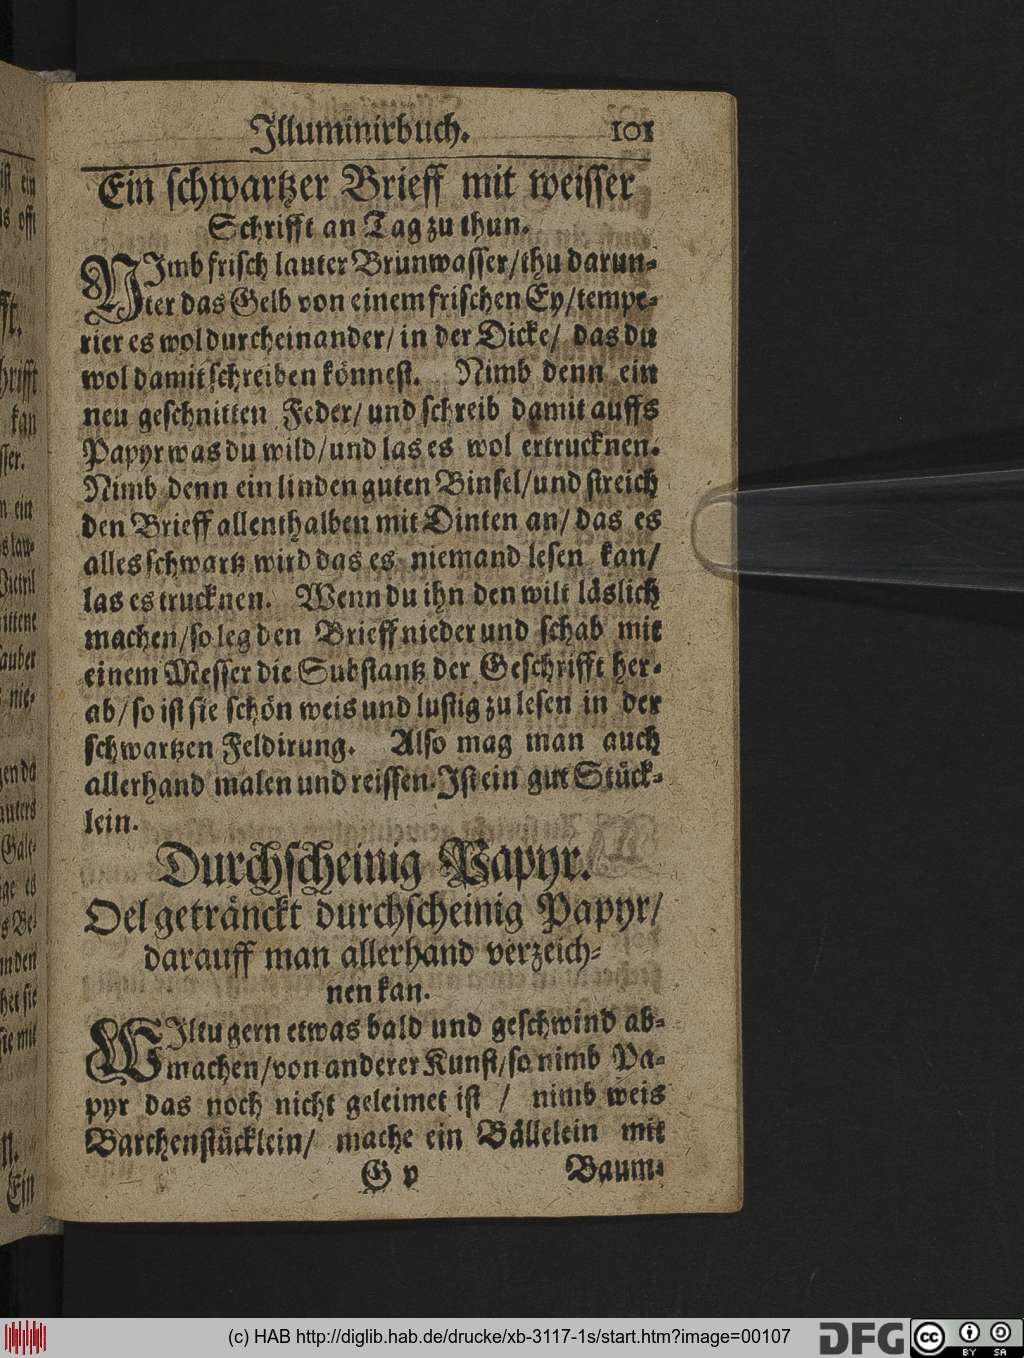 Illuminirbuch. 101
Ein schwartzer Brieff mit weisser
Schrifft an Tag zu thun.
NImb frisch lauter Brunwasser/thu darun-
ter das Gelb von einem frischen Ey/tempe-
rier es wol durcheinander/ in der Dicke/ das du
wol damit schreiben könnest. Nimb denn ein
neu geschnitten Feder/ und schreib damit auffs
Papyr was du wild/und las es wol ertrucknen.
Nimb denn ein linden guten Binsel/und streich
den Brieff allenthalben mit Dinten an/ das es
alles schwartz wird das es niemand lesen kan/
las es trucknen. Wenn du ihn den wilt läslich
machen/so leg den Brieff nieder und schab mit
einem Messer die Substantz der Geschrifft her-
ab/so ist sie schön weis und lustig zu lesen in der
schwartzen Feldirung. Also mag man auch
allerhand malen und reissen. Ist ein gut Stück-
lein.
Durchscheinig Papyr.
Oel getränckt durchscheinig Papyr/
darauff man allerhand verzeich-
nen kan.
WIltu gern etwas bald und geschwind ab-
machen/von anderer Kunst/so nimb Pa-
pyr das noch nicht geleimet ist / nimb weis
Barchenstücklein/ mache ein Bällelein mit
G v Baum-
(c) HAB http://diglib.hab.de/drucke/xb-3117-1s/start.htm?image=00107
DFG
cc BY SA